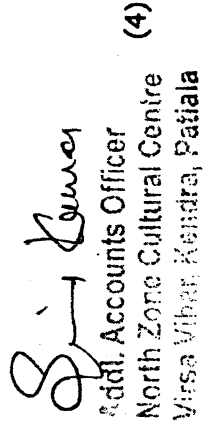 Addl. Accounts Officer
(4)
North Zone Cultural Centre
Virsa Vihar Kendra, Patiala